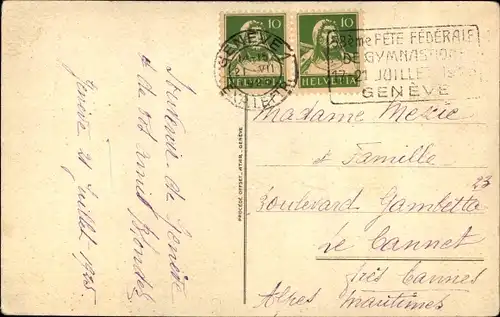 10 10
HELVETIA HELVETIA
GENÈVE
21 VII
58ème FÊTE FÉDÉRALE
DE GYMNASTIQUE
17-21 JUILLET 19
GENÈVE
Souvenir de Genève
de vos amis
Genève 21 Juillet 1925
PROCÉDÉ OFFSET, ATAR, GENÈVE
Madame
et Famille
23
Boulevard Gambetta
Le Cannet
près Cannes
Alpes Maritimes